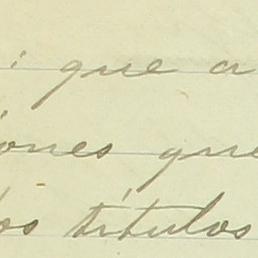 que a
iones que
los títulos